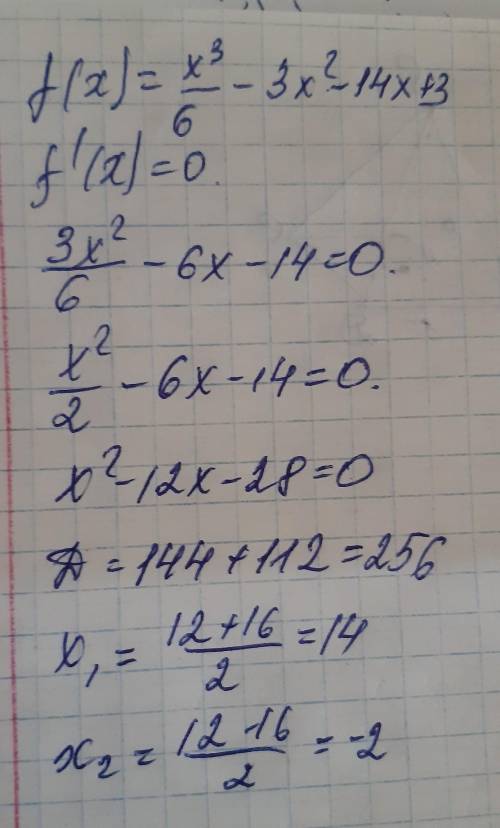 f(x) = x³/6 - 3x² - 14x + 3
f'(x) = 0.
3x²/6 - 6x - 14 = 0.
x²/2 - 6x - 14 = 0.
x² - 12x - 28 = 0
Д = 144 + 112 = 256
x₁ = (12 + 16)/2 = 14
x₂ = (12 - 16)/2 = -2